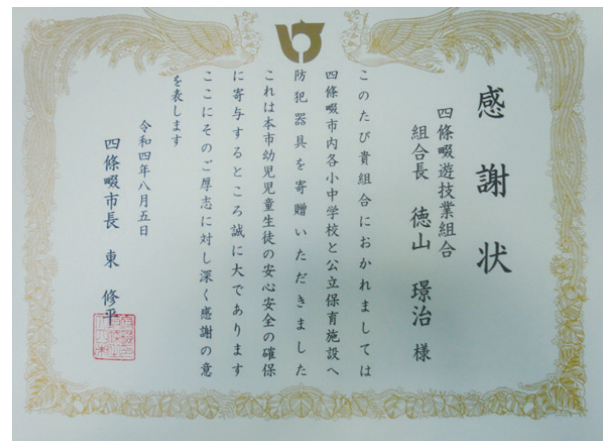 感謝状
四條畷遊技業組合
組合長 徳山 璟治 様
このたび貴組合におかれましては
四條畷市内各小中学校と公立保育施設へ
防犯器具を寄贈いただきました
これは本市幼児児童生徒の安心安全の確保
に寄与するところ誠に大であります
ここにそのご厚志に対し深く感謝の意
を表します
令和四年八月五日
四條畷市長 東 修平